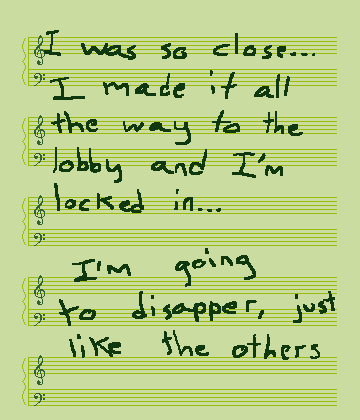 I was so close...
I made it all
the way to the
lobby and I'm
locked in...
I'm going
to disapper, just
like the others